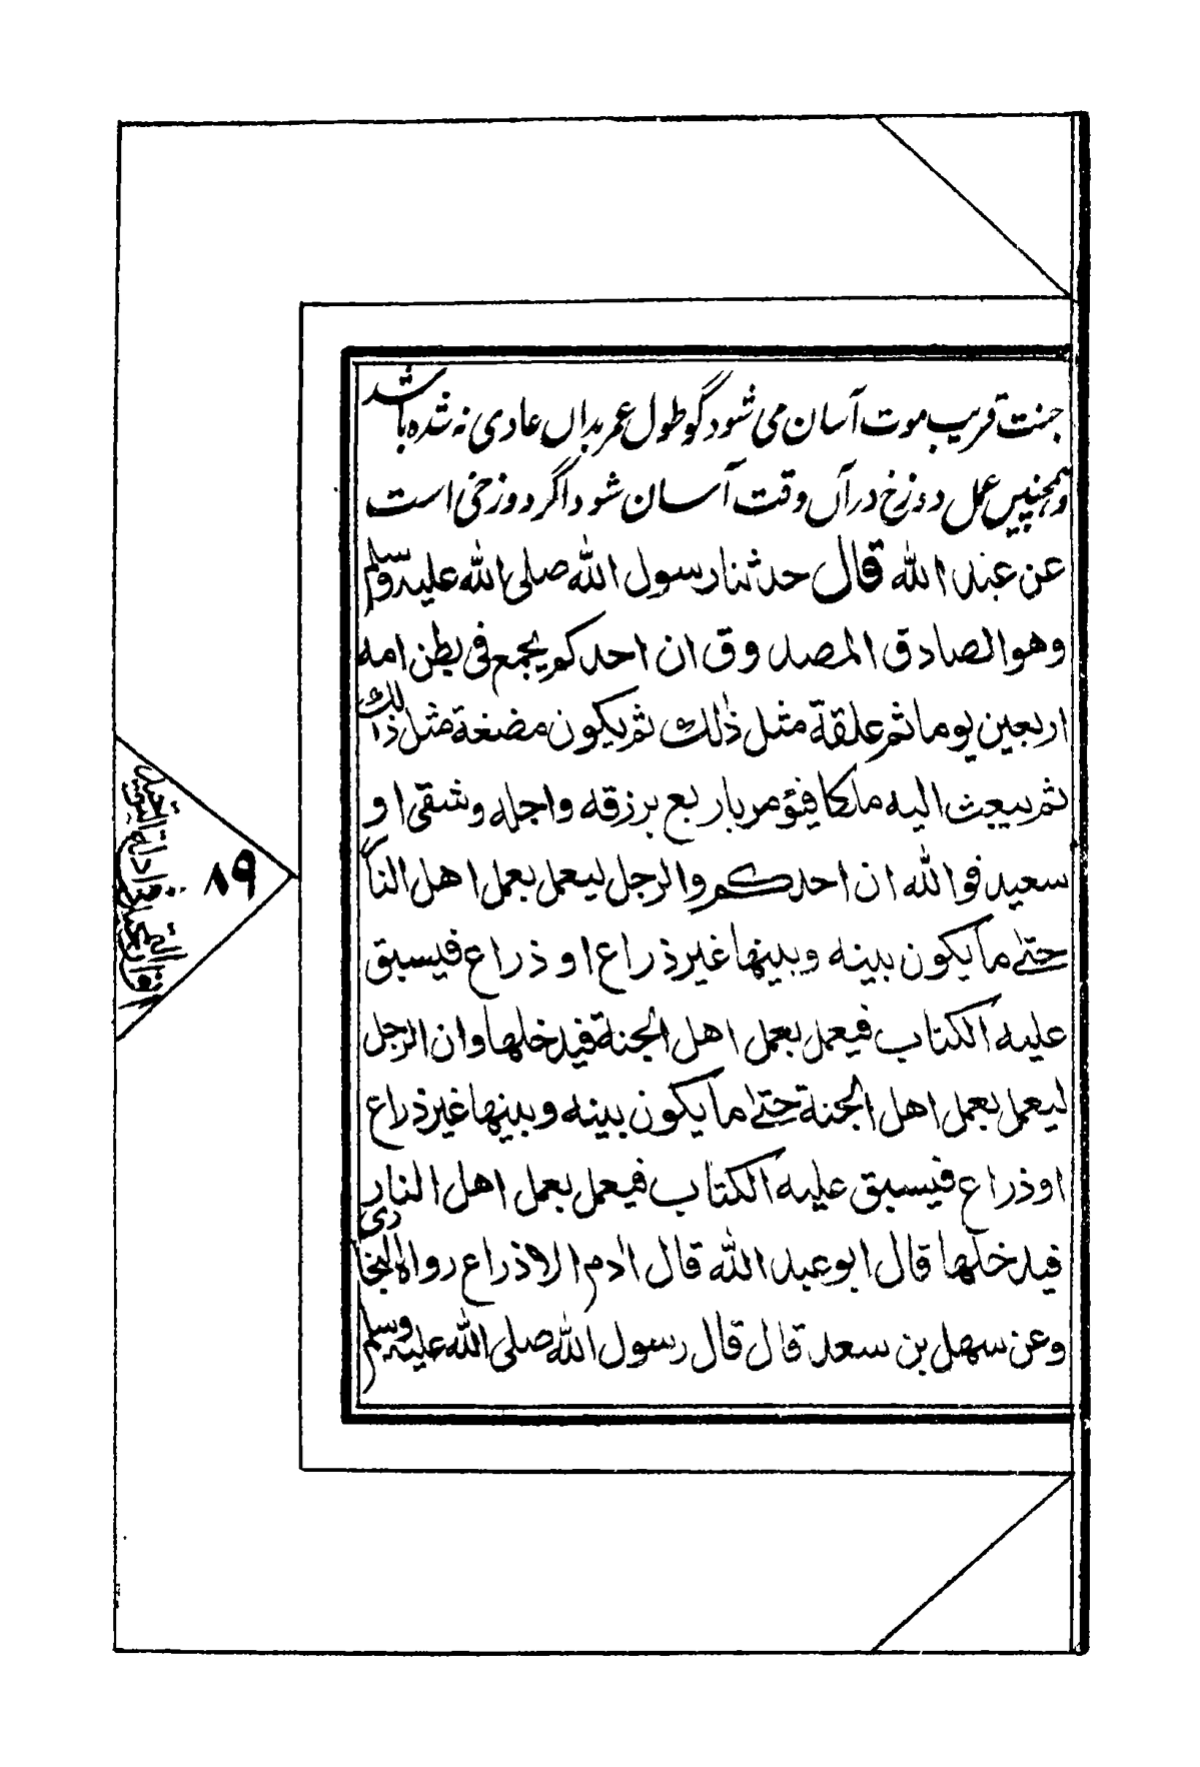 جنت قریب موت آسان می شود گو طول عمر بداں عادی نه شده باشد
وهمچنیں عمل دوزخ در آں وقت آسان شود اگر دوزخی است
عن عبد الله قال حدثنا رسول الله صلی الله علیه وسلم
وهو الصادق المصدوق ان احدکم یجمع فی بطن امه
اربعین یوما ثم علقة مثل ذٰلك ثم یکون مضغة مثل ذٰلك
ثم یبعث الیه ملکا فیؤمر باربع برزقه واجله وشقی او
سعید فوالله ان احدکم والرجل لیعمل بعمل اهل النا
حتیٰ ما یکون بینه وبینها غیر ذراع او ذراع فیسبق
علیه الکتاب فیعمل بعمل اهل الجنة فیدخلها وان الرجل
لیعمل بعمل اهل الجنة حتیٰ ما یکون بینه وبینها غیر ذراع
او ذراع فیسبق علیه الکتاب فیعمل بعمل اهل النار
فیدخلها قال ابو عبد الله قال اٰدم الا ذراع رواه البخاری
وعن سهل بن سعد قال قال رسول الله صلی الله علیه وسلم
۸۹